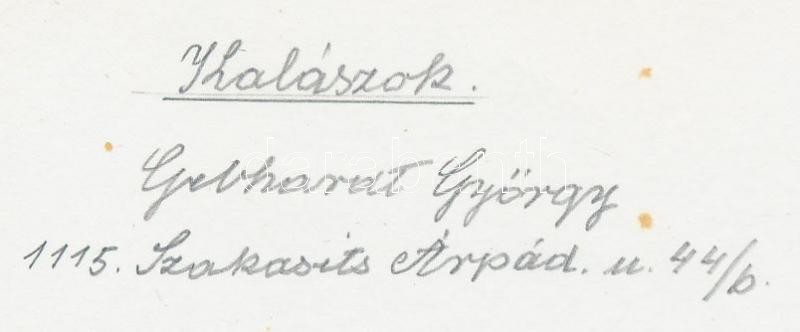 Kalászok.
Gebhardt György
1115. Szakasits Árpád. u. 44/b.